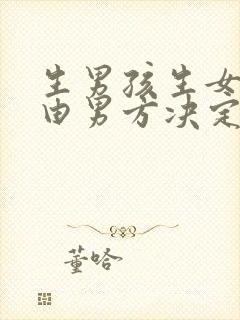 生男孩生女
由男方决定
董哈